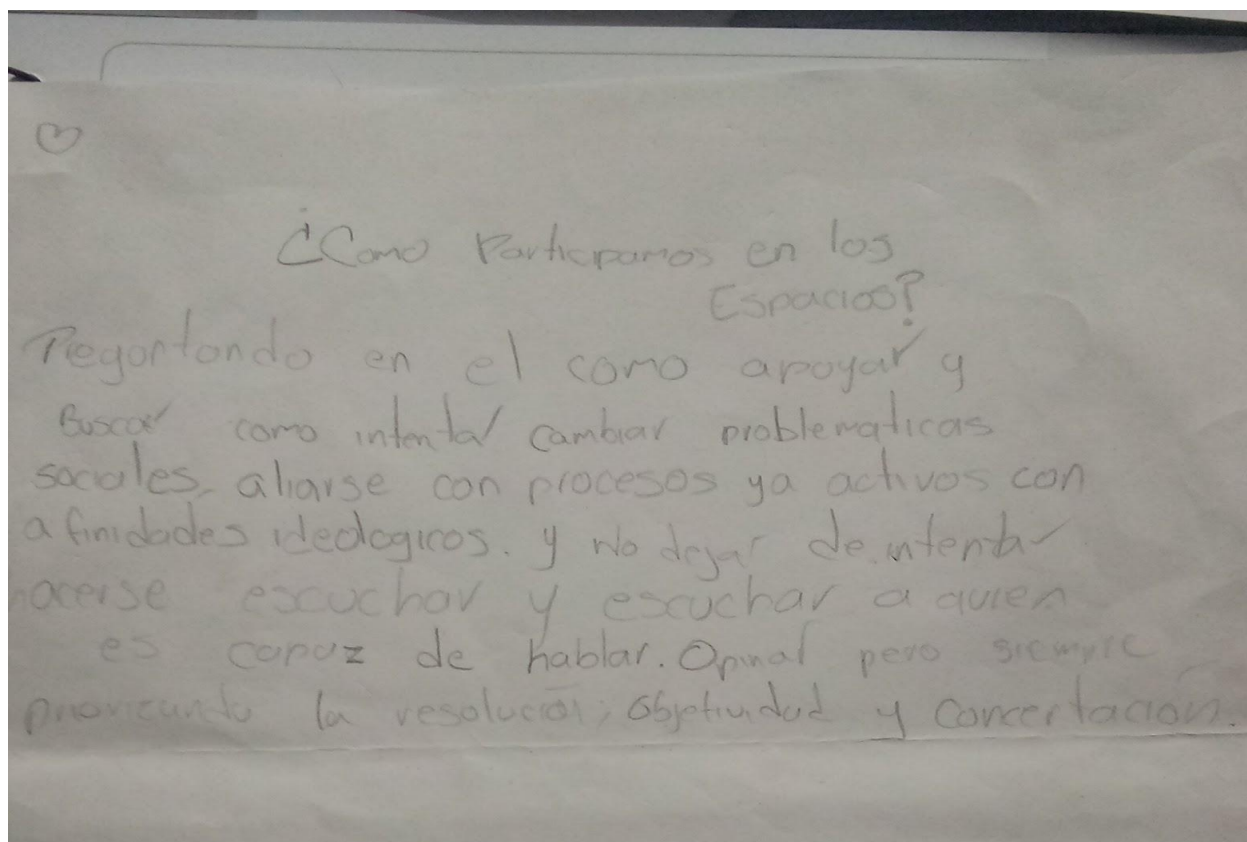 ¿Como Participamos en los
Espacios?
Pregontando en el como apoyar y
Buscar como intentar cambiar problematicas
sociales, aliarse con procesos ya activos con
afinidades ideologicos. y No dejar de intentar
hacerse escuchar y escuchar a quien
es capaz de hablar. Opinar pero siempre
priorizando la resolución, objetividad y concertación.